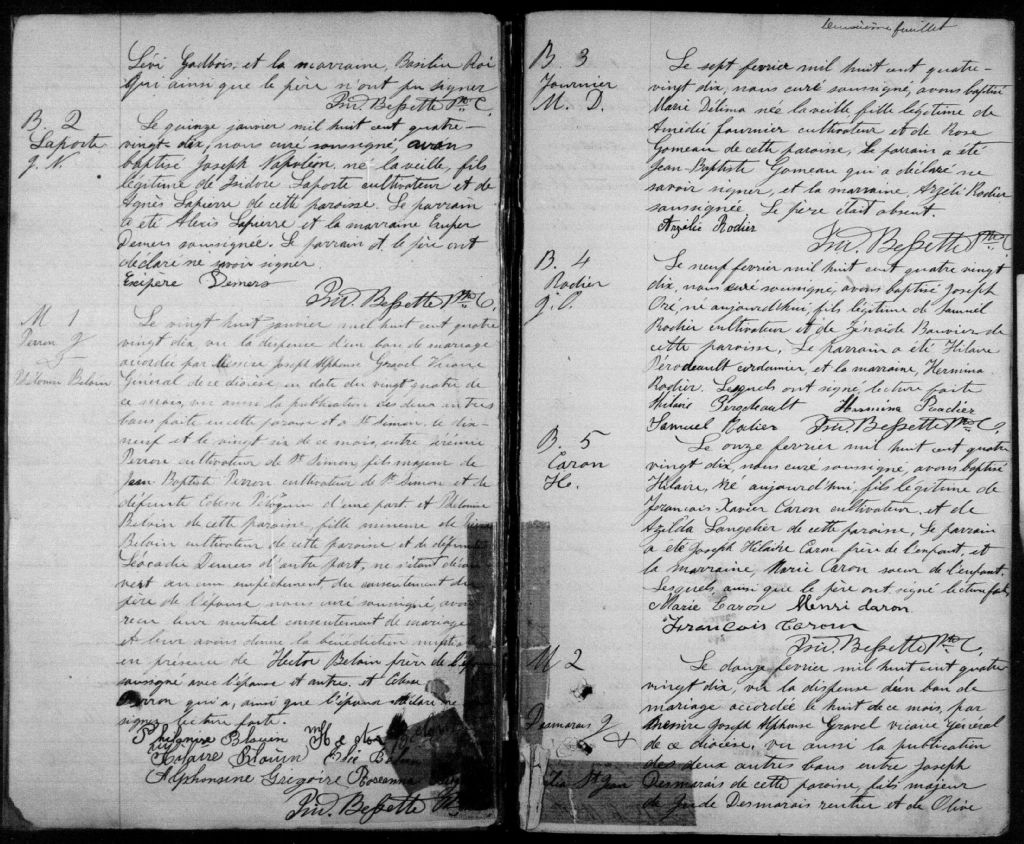 Lévi Godbois et la marraine, Basilice Roi
qui ainsi que le père n'ont pu signer
Frd. Bessette Ptre C.
B. 2
Laporte
J. N.
Le quinze janvier mil huit cent quatre-
vingt dix, nous curé soussigné, avons
baptisé Joseph Napoléon né la veille, fils
légitime de Isidore Laporte cultivateur et de
Agnès Lapierre de cette paroisse. Le parrain
a été Alexis Lapierre et la marraine Exuper
Demers soussignée. Le parrain et le père ont
déclaré ne savoir signer.
Exupère Demers
Frd. Bessette Ptre C.
M 1
Perron J
&
Philomin Belouin
Le vingt huit janvier mil huit cent quatre
vingt dix vu la dispense d'un ban de mariage
accordée par Messire Joseph Alphonse Gravel Vicaire
Général de ce diocèse en date du vingt quatre de
ce mois, vu aussi la publication des deux autres
bans faite en cette paroisse et à St Simon le dix-
neuf et le vingt six de ce mois, entre Jérémie
Perron cultivateur de St Simon, fils majeur de
Jean Baptiste Perron cultivateur de St Simon et de
défunte Edesse d'une part, et Philomin
Belouin de cette paroisse, fille mineure de
Belouin cultivateur de cette paroisse et de défunte
Léocadie Demers d'autre part, ne s'étant décou
vert aucun empêchement, du consentement du
père de l'épouse, nous curé soussigné, avons
reçu leur mutuel consentement de mariage
et leur avons donné la bénédiction nuptiale
en présence de Hector Belouin frère de l'épouse
soussigné avec l'épouse et autres, et
Perron qui a, ainsi que l'époux déclaré ne
signer lecture faite.
Philomine Blouin
Hilaire Blouin Elie
Alphonsine Gregoire Roseanna
Frd. Bessette
deuxième feuillet
B. 3
Fournier
M. D.
Le sept fevrier mil huit cent quatre-
vingt dix, nous curé soussigné, avons baptisé
Marie Délima née la veille fille légitime de
Amédée fournier cultivateur et de Rose
Gomeau de cette paroisse, Le parrain a été
Jean-Baptiste Gomeau qui a déclaré ne
savoir signer, et la marraine, Azéli Rodier
soussignée. Le père était absent.
Azélie Rodier
Frd. Bessette Ptre C.
B. 4
Rodier
J. O.
Le neuf fevrier mil huit cent quatre vingt
dix, nous curé soussigné, avons baptisé Joseph
Ozé, né aujourd'hui, fils légitime de Samuel
Rodier cultivateur et de Zénaïde Bouvier de
cette paroisse, Le parrain a été Hilaire
Pérodeault cordonnier, et la marraine, Hermina
Rodier. Lesquels ont signé lecture faite
Hilaire Hermina Raudier
Samuel Rodier Frd. Bessette Ptre C.
B. 5
Caron
H.
Le onze fevrier mil huit cent quatre
vingt dix, nous curé soussigné, avons baptisé
Hilaire, né aujourd'hui, fils légitime de
François Xavier Caron cultivateur et de
Azélda Langelier de cette paroisse, Le parrain
a été Joseph Hilaire Caron frère de l'enfant, et
la marraine, Marie Caron soeur de l'enfant.
Lesquels, ainsi que le père ont signé lecture faite
Marie Caron Henri Caron
François Caron
Frd. Bessette Ptre C.
M 2
Desmarais J
&
St Jean
Le douze fevrier mil huit cent quatre
vingt dix, vu la dispense d'un ban de
mariage accordée le huit de ce mois, par
Messire Joseph Alphonse Gravel vicaire Général
de ce diocèse, vu aussi la publication
des deux autres bans entre Joseph
Desmarais de cette paroisse, fils majeur
de Jude Desmarais rentier et de Olive